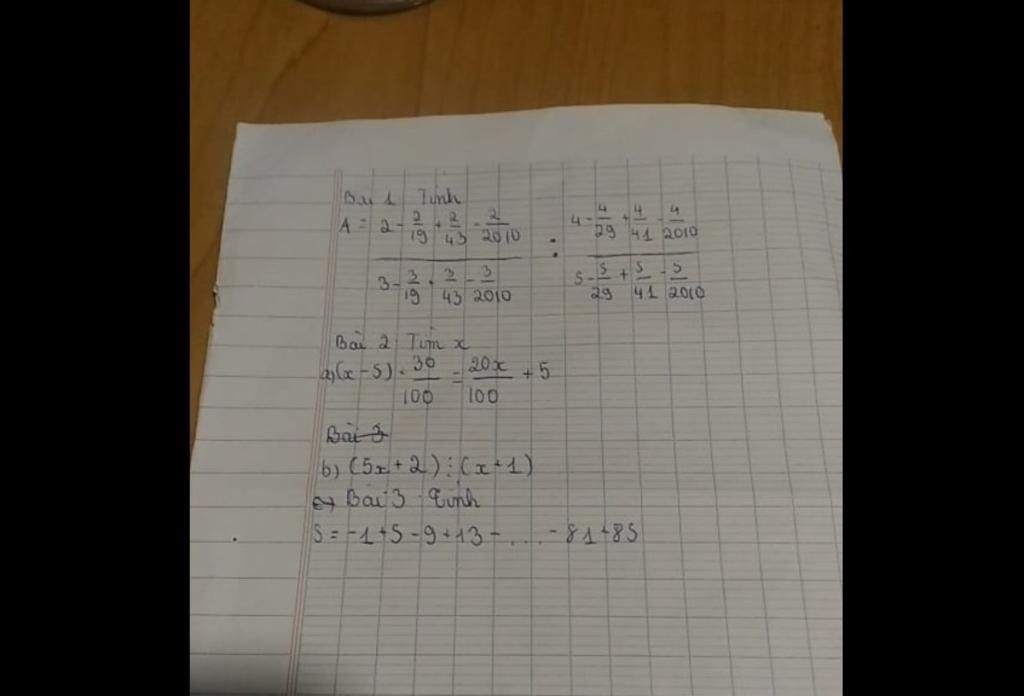 Bài 1 Tính
A = 2 - 2/19 + 2/43 - 2/2010 : 4 - 4/29 + 4/41 - 4/2010
3 - 3/19 + 3/43 - 3/2010 5 - 5/29 + 5/41 - 5/2010
Bài 2 Tìm x
a) (x - 5) . 30/100 = 20x/100 + 5
Bài 3
b) (5x + 2) ⋮ (x + 1)
Bài 3 Tính
S = -1 + 5 - 9 + 13 - .... - 81 + 85